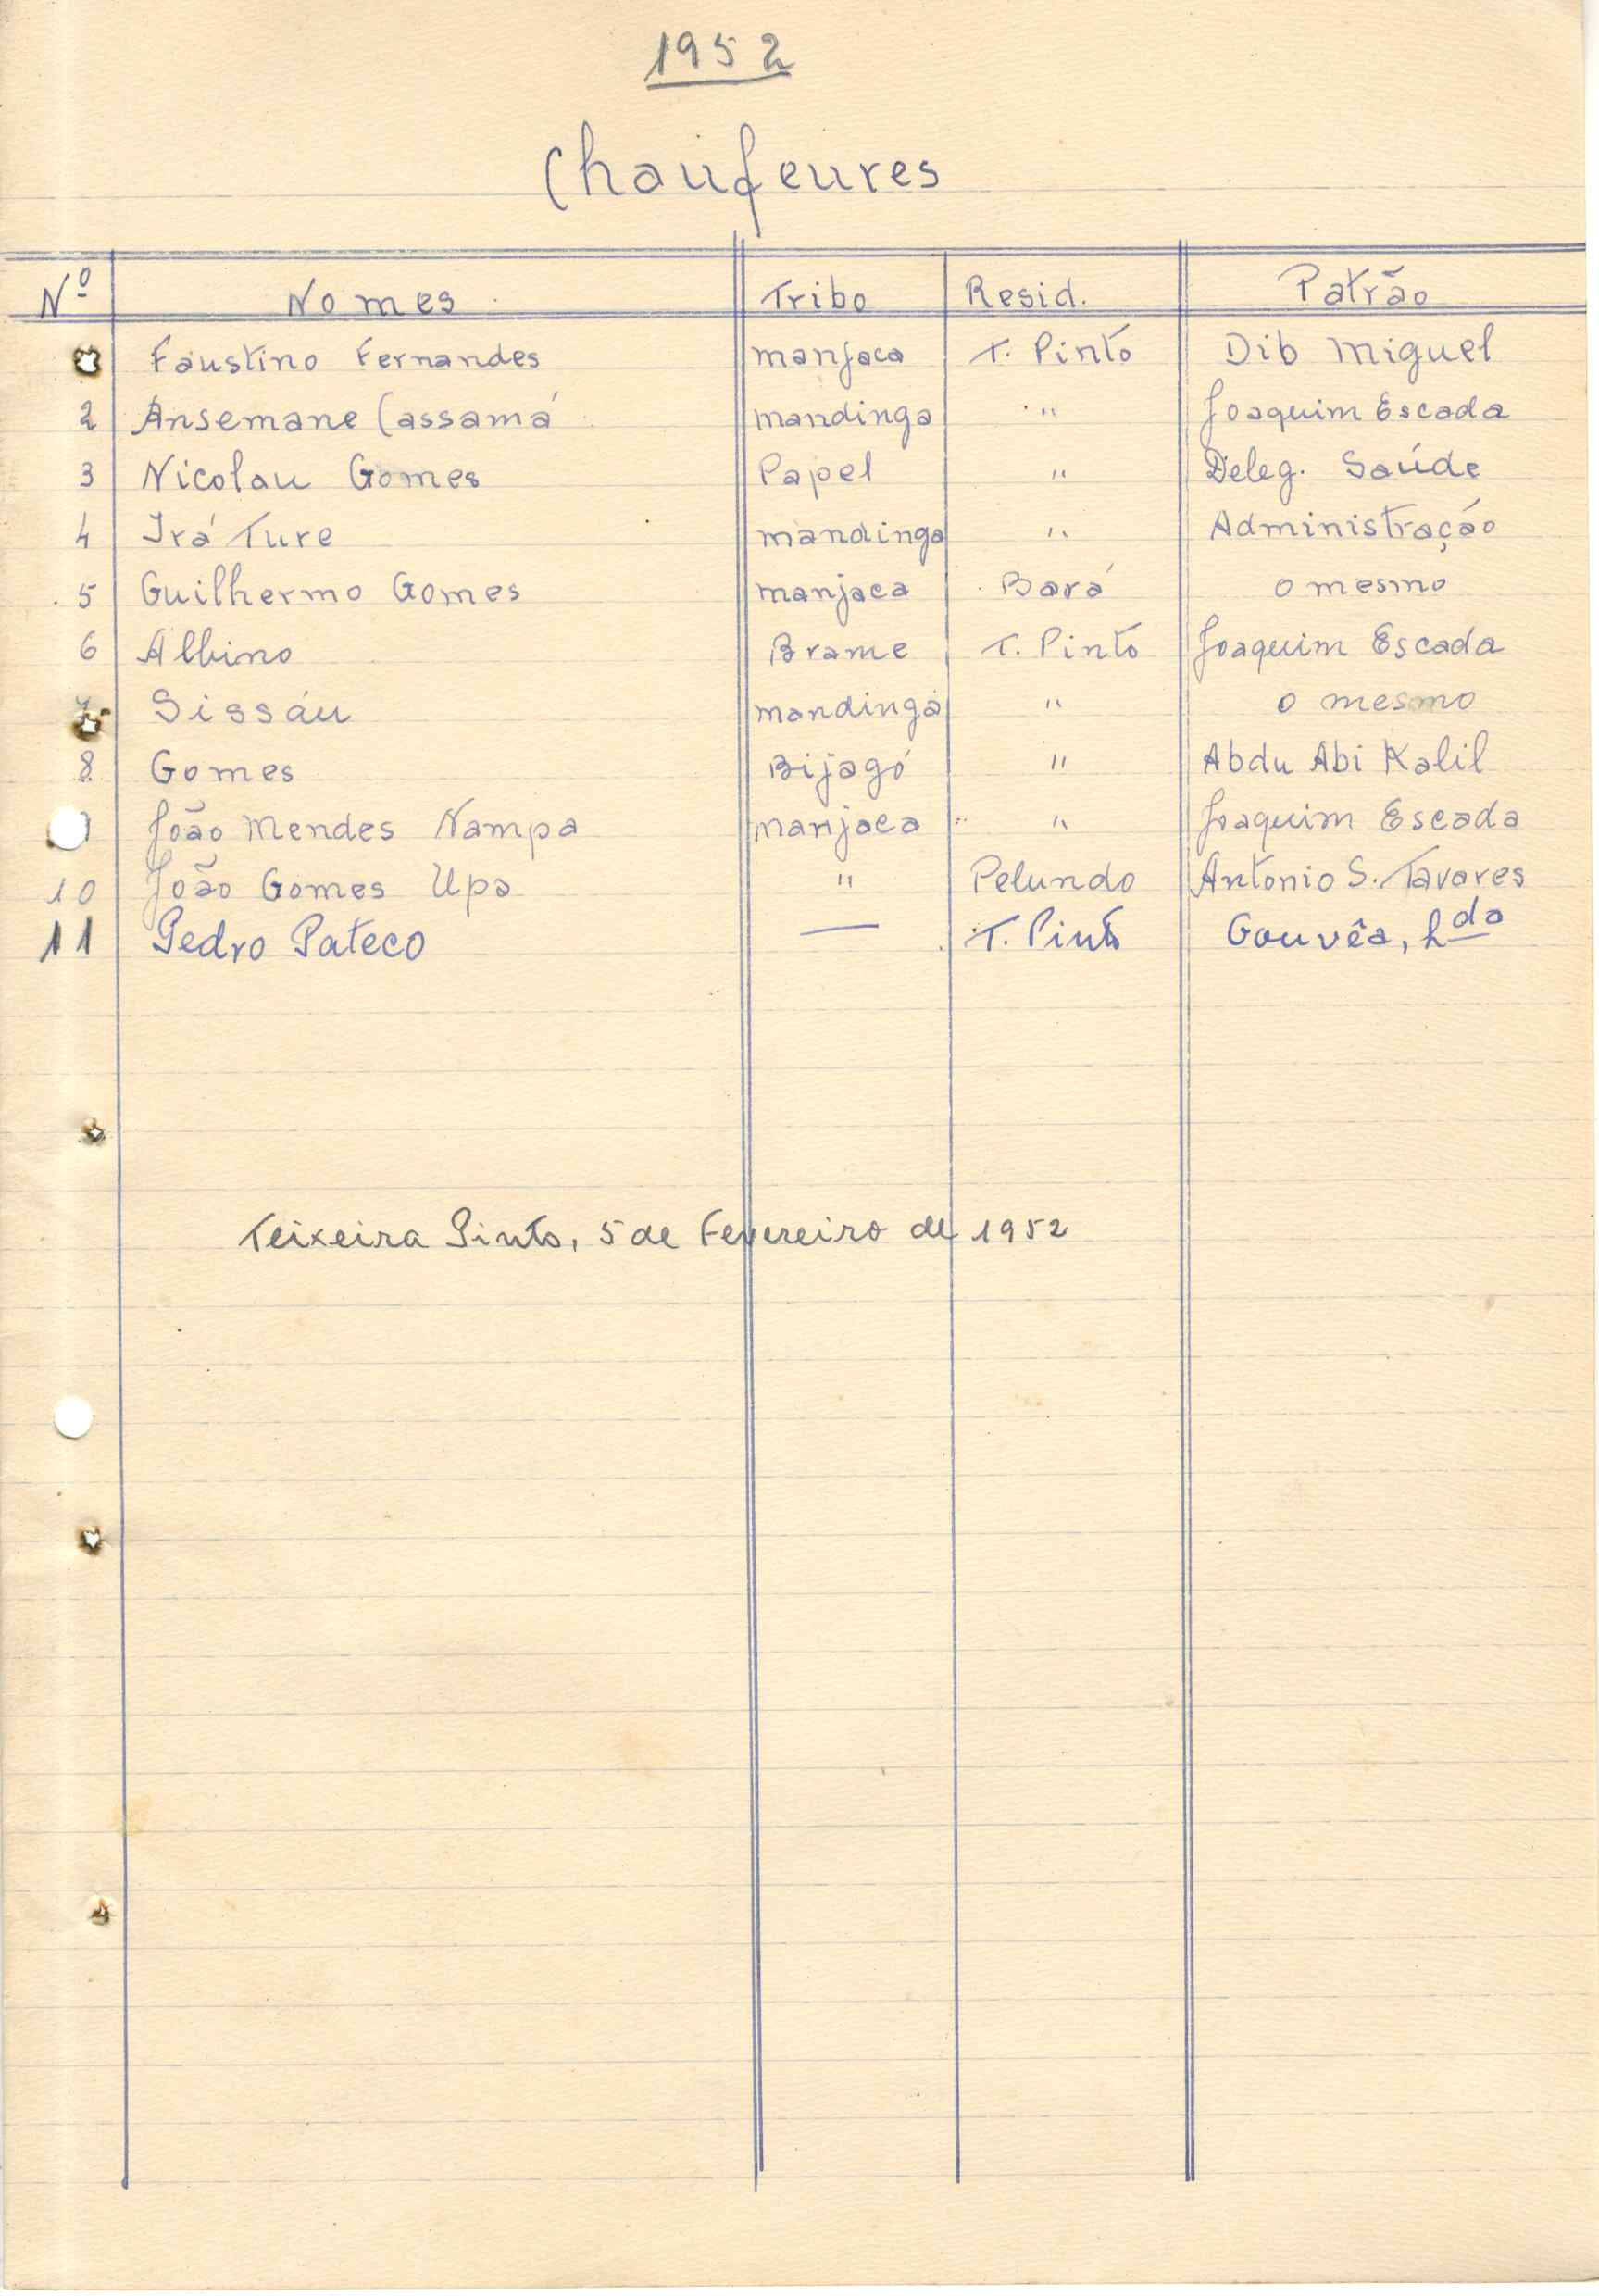 1952
Chaufeures
Nº Nomes Tribo Resid. Patrão
Faustino Fernandes manjaca T. Pinto Dib Miguel
2 Ansemane Cassamá mandinga " Joaquim Escada
3 Nicolau Gomes Papel " Deleg. Saúde
4 Irá Ture mandinga " Administração
5 Guilhermo Gomes manjaca Bará o mesmo
6 Albino Brame T. Pinto Joaquim Escada
7 Sissáu mandinga " o mesmo
8 Gomes Bijagó " Abdu Abi Kalil
João Mendes Nampa manjaca " Joaquim Escada
10 João Gomes Upa " Pelundo Antonio S. Tavares
11 Pedro Pateco — T. Pinto Gouvêa, Lda
Teixeira Pinto, 5 de Fevereiro de 1952